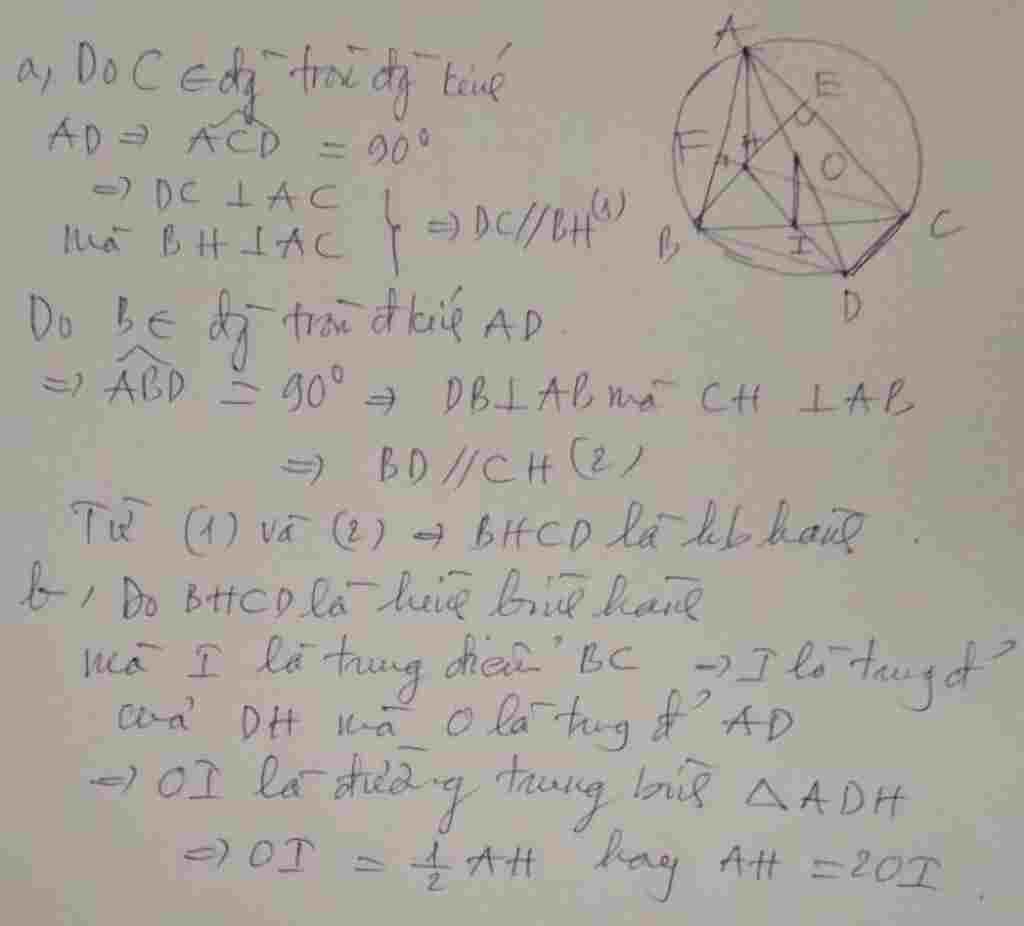 a, Do C ∈ đg tròn đg kính
AD ⇒ ACD = 90°
⇒ DC ⊥ AC
mà BH ⊥ AC } ⇒ DC // BH (1)
Do B ∈ đg tròn đkính AD.
⇒ ABD = 90° ⇒ DB ⊥ AB mà CH ⊥ AB
⇒ BD // CH (2)
Từ (1) và (2) ⇒ BHCD là hb hành.
b, Do BHCD là hình bình hành
mà I là trung điểm BC ⇒ I là trung đ'
của DH mà O là tug đ' AD
⇒ OI là đường trung bình △ADH
⇒ OI = 1/2 AH hay AH = 2OI.
A
E
F
H
O
B
I
C
D